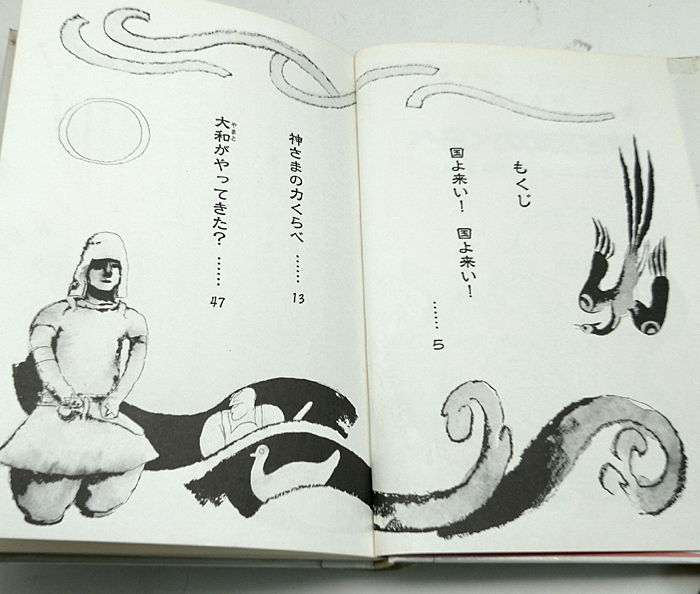 もくじ
国よ来い! 国よ来い! …… 5
神さまの力くらべ …… 13
大和がやってきた? …… 47
やまと